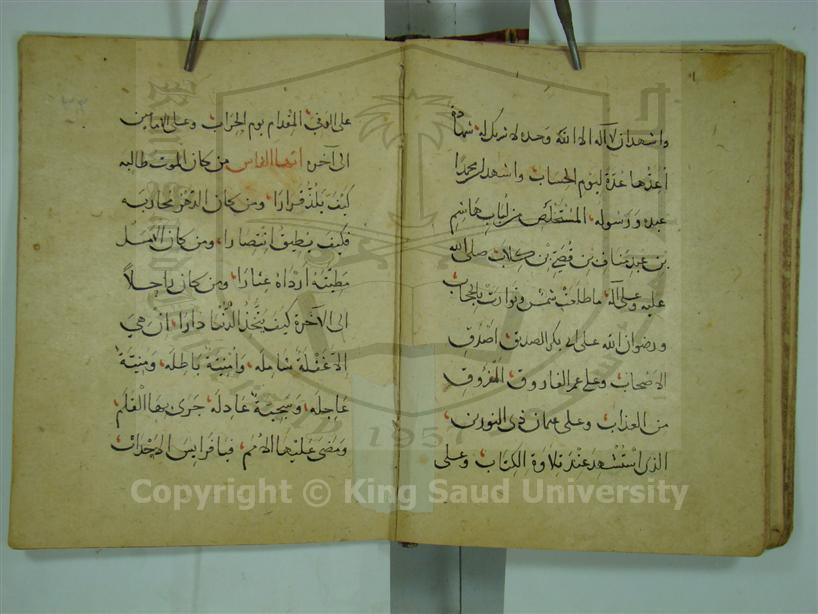 واشهد ان لا اله الا الله وحده لا شريك له شهادة
اعدها عدة ليوم الحساب واشهد ان محمدا
عبده ورسوله المستخلص من لباب هاشم
بن عبد مناف بن قصي بن كلاب صلى الله
عليه وعلى آله ما طلعت شمس وتوارت بالحجاب
ورضوان الله على ابي بكر الصديق اصدق
الاصحاب وعلى عمر الفاروق المفروق
من العذاب وعلى عثمان ذي النورين
الذي استشهد عند تلاوة الكتاب وعلى
على الوفي المقدام يوم الحراب وعلى
الى آخره ايها الناس من كان الموت طالبه
كيف يلذ قرارا ومن كان الدهر محاربه
فكيف يطيق انتصارا ومن كان الامل
مطيته ارداه عثارا ومن كان راحلاً
الى الآخرة كيف يتخذ الدنيا دارا ان هي
الا غفلة شاملة وامنية باطله ومنية
عاجله وسجية عادله جرى بها القلم
ومضى عليها الامم فيا فرايس الاحداث
1957
Copyright © King Saud University